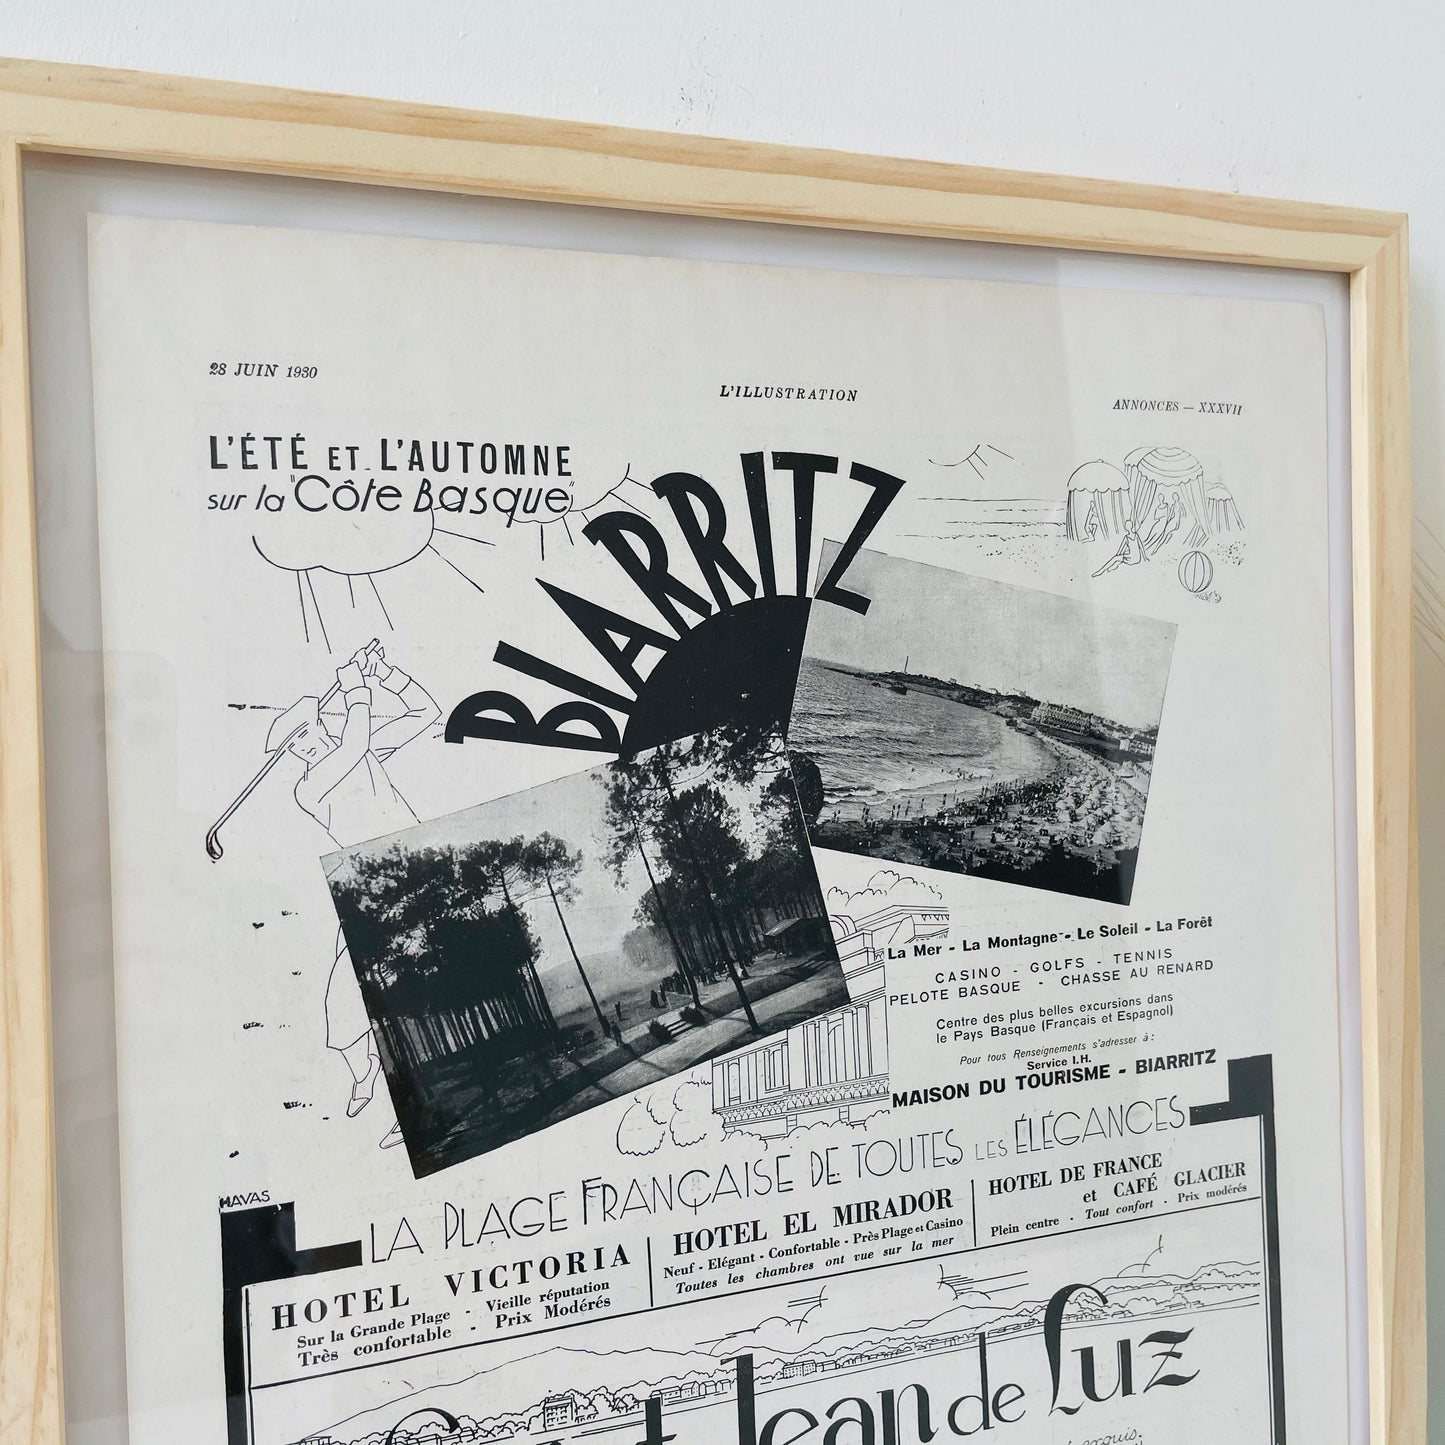 28 JUIN 1930
L'ILLUSTRATION
ANNONCES — XXXVII
L'ÉTÉ ET L'AUTOMNE
sur la "Côte Basque"
BIARRITZ
La Mer - La Montagne - Le Soleil - La Forêt
CASINO - GOLFS - TENNIS
PELOTE BASQUE - CHASSE AU RENARD
Centre des plus belles excursions dans
le Pays Basque (Français et Espagnol)
Pour tous Renseignements s'adresser à :
Service I.H.
MAISON DU TOURISME - BIARRITZ
HAVAS
LA PLAGE FRANÇAISE DE TOUTES LES ÉLÉGANCES
HOTEL VICTORIA
Sur la Grande Plage - Vieille réputation
Très confortable - Prix Modérés
HOTEL EL MIRADOR
Neuf - Elégant - Confortable - Près Plage et Casino
Toutes les chambres ont vue sur la mer
HOTEL DE FRANCE
et CAFÉ GLACIER
Plein centre - Tout confort - Prix modérés
Jean de Luz